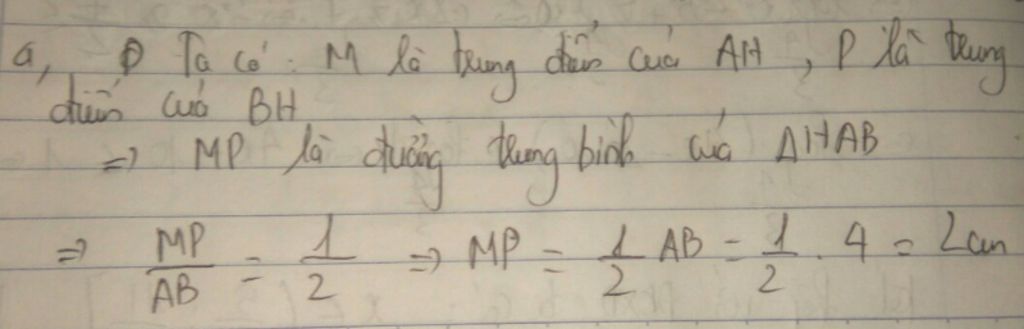 a, Ta có: M là trung điểm của AH, P là trung
điểm của BH
=> MP là đường trung bình của ΔHAB
=> MP/AB = 1/2 => MP = 1/2 AB = 1/2 . 4 = 2cm